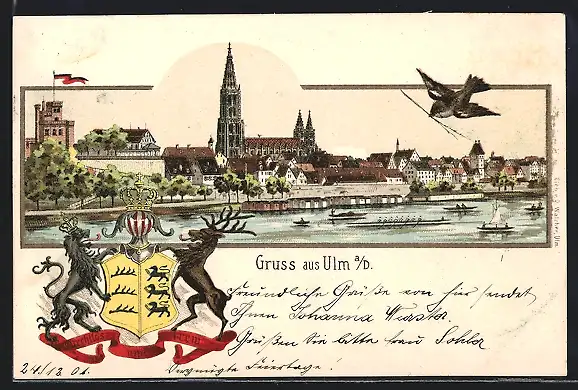 Gruss aus Ulm a/D.
Freundliche Grüße von hier sendet
Ihnen Johanna
Grüßen Sie bitte Frau
24/12 01. Vergnügte Feiertage!
Furchtlos und treu